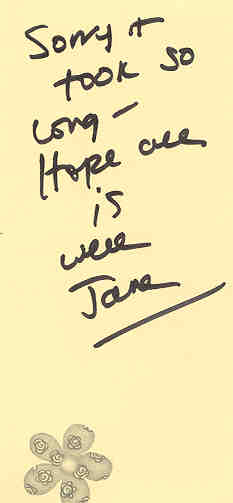 Sorry it
took so
long -
Hope all
is
well
Jane